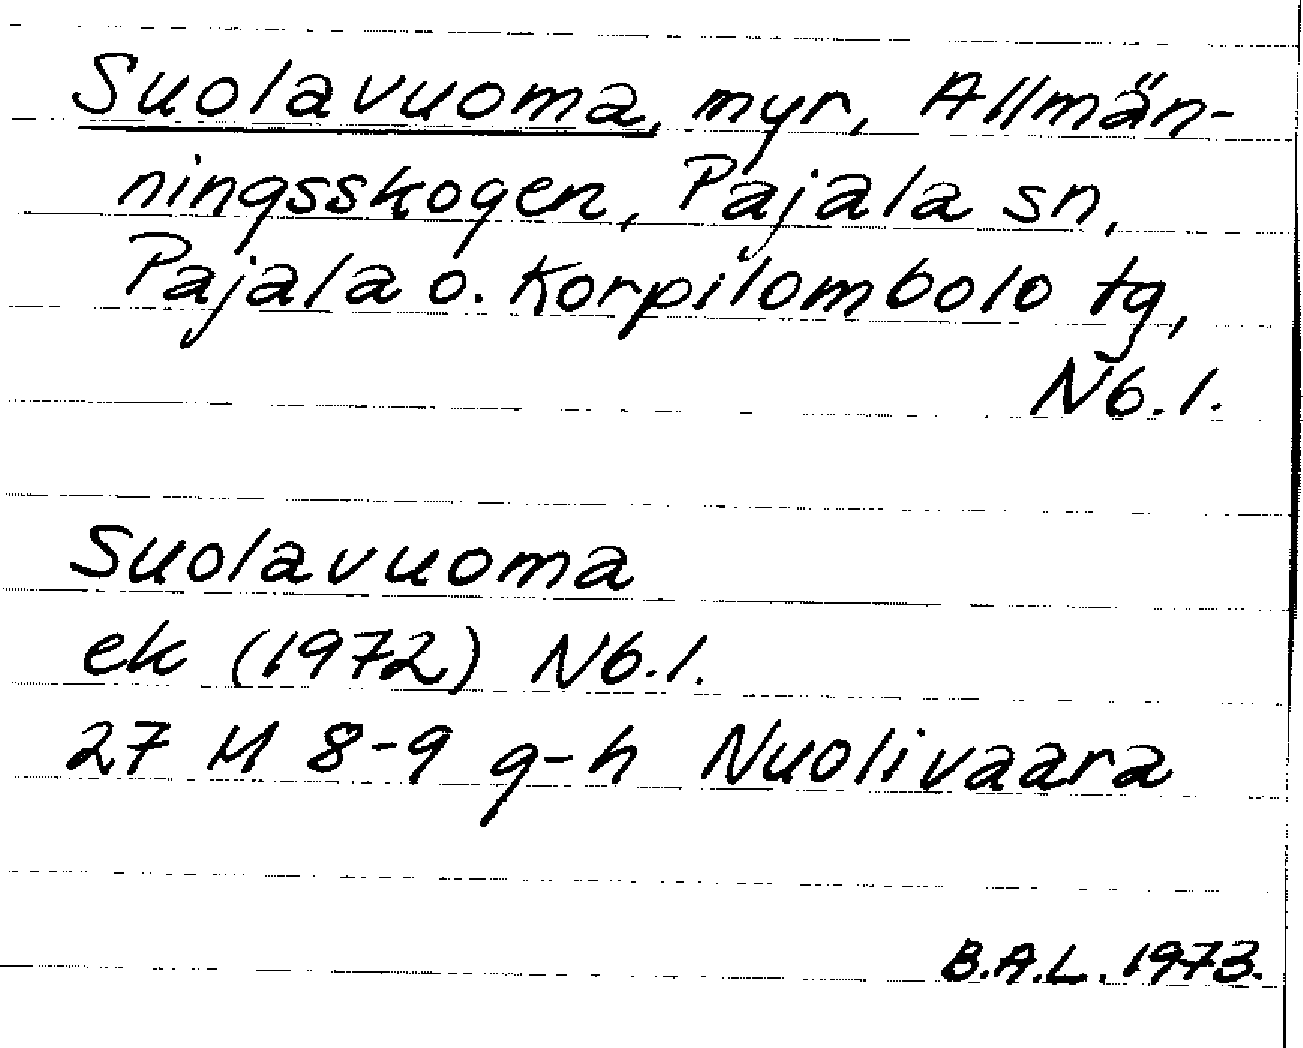 Suolavuoma, myr, Allmän-
ningsskogen, Pajala sn,
Pajala o. Korpilombolo tg,
Nb.l.
Suolavuoma
ek (1972) Nb.l.
27 M 8-9 g-h Nuolivaara
B.A.L. 1973.